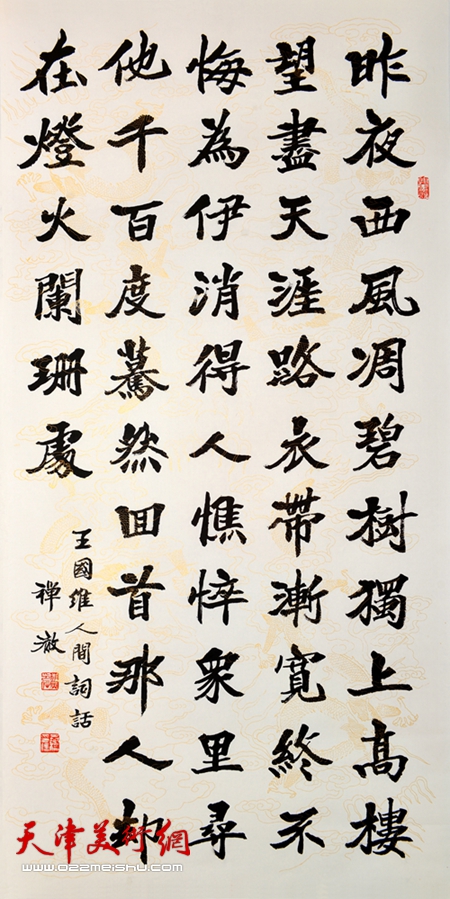 昨夜西風凋碧樹獨上高樓
望盡天涯路衣帶漸寬終不
悔為伊消得人憔悴衆里尋
他千百度驀然回首那人却
在燈火闌珊處
王國維人間詞話
禪澈
天津美術網
www.022meishu.com